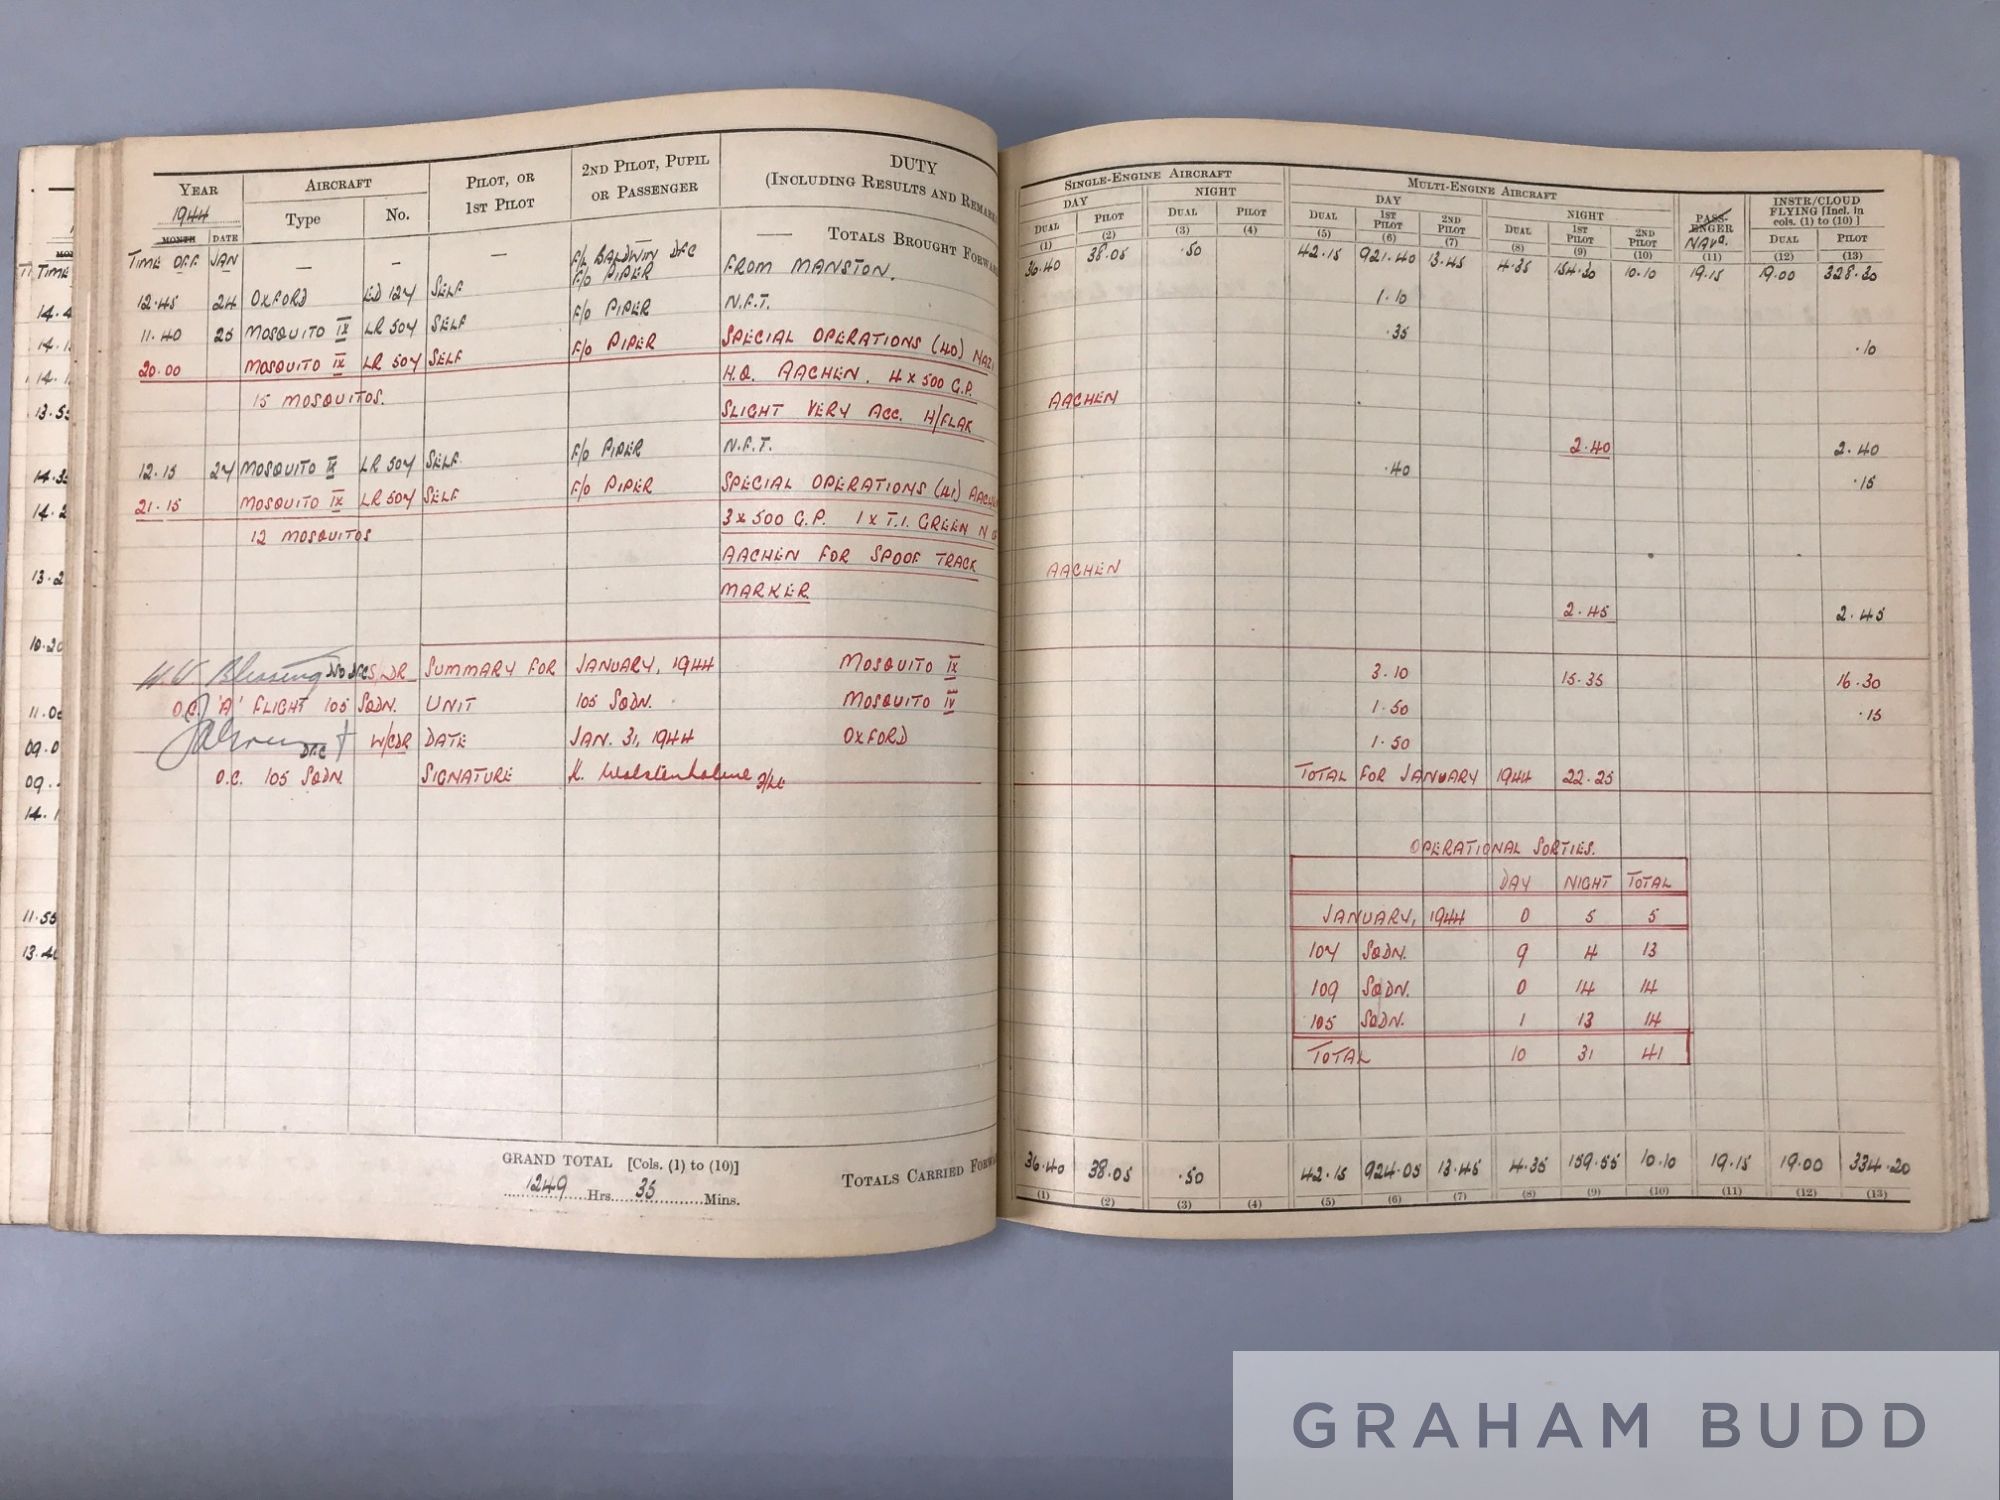 YEAR AIRCRAFT PILOT, OR 1ST PILOT 2ND PILOT, PUPIL OR PASSENGER DUTY (INCLUDING RESULTS AND REMARK
1944 Type No.
MONTH DATE
TIME OFF JAN — — — — TOTALS BROUGHT FORWA
12.45 24 OXFORD ED 124 SELF F/L BALDWIN DFC F/O PIPER FROM MANSTON.
11.40 25 MOSQUITO IX LR 504 SELF F/O PIPER N.F.T.
20.00 MOSQUITO IX LR 504 SELF F/O PIPER SPECIAL OPERATIONS (40) NAZI
15 MOSQUITOS. H.Q. AACHEN. 4 x 500 G.P.
SLIGHT VERY ACC. H/FLAK
12.15 27 MOSQUITO IX LR 504 SELF F/O PIPER N.F.T.
21.15 MOSQUITO IX LR 504 SELF F/O PIPER SPECIAL OPERATIONS (41)
12 MOSQUITOS 3 x 500 G.P. 1 x T.I. GREEN N
AACHEN FOR SPOOF TRACK
MARKER.
W.W. Blessing DSO DFC S/LDR SUMMARY FOR JANUARY, 1944 MOSQUITO IX
O.C. 'A' FLIGHT 105 SQDN. UNIT 105 SQDN. MOSQUITO IV
DFC W/CDR DATE JAN. 31, 1944 OXFORD
O.C. 105 SQDN. SIGNATURE K. Wolstenholme F/Lt
GRAND TOTAL [Cols. (1) to (10)]
1249 Hrs. 35 Mins.
TOTALS CARRIED FORWA
TIME
14.4
14.1
14.1
13.55
14.35
14.2
13.2
10.20
11.00
09.0
09.
14.1
11.55
13.40
SINGLE-ENGINE AIRCRAFT MULTI-ENGINE AIRCRAFT PASS-ENGER INSTR/CLOUD FLYING [Incl. in cols. (1) to (10)]
DAY NIGHT DAY NIGHT NAVR.
DUAL PILOT DUAL PILOT DUAL 1ST PILOT 2ND PILOT DUAL 1ST PILOT 2ND PILOT DUAL PILOT
(1) (2) (3) (4) (5) (6) (7) (8) (9) (10) (11) (12) (13)
36.40 38.05 .50 42.15 921.40 13.45 4.35 154.30 10.10 19.15 19.00 328.30
1.10
.35 .10
AACHEN
2.40 2.40
.40 .15
AACHEN
2.45 2.45
3.10 15.35 16.30
1.50 .15
1.50
TOTAL FOR JANUARY 1944 22.25
OPERATIONAL SORTIES.
DAY NIGHT TOTAL
JANUARY, 1944 0 5 5
107 SQDN. 9 4 13
109 SQDN. 0 14 14
105 SQDN. 1 13 14
TOTAL 10 31 41
36.40 38.05 .50 42.15 924.05 13.45 4.35 159.55 10.10 19.15 19.00 334.20
(1) (2) (3) (4) (5) (6) (7) (8) (9) (10) (11) (12) (13)
GRAHAM BUDD